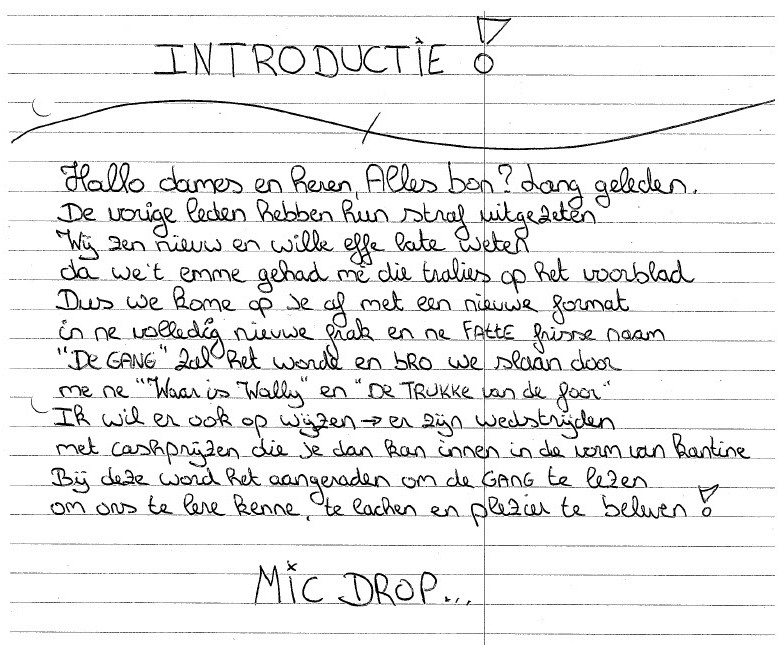 INTRODUCTIE !
Hallo dames en heren, Alles bon? Lang geleden.
De vorige leden hebben hun straf uitgezeten
Wij zen nieuw en wille effe late weten
da we't emme gehad mè die tralies op het voorblad
Dus we kome op je af met een nieuwe format
in ne volledig nieuwe frak en ne FATTE frisse naam
"De GANG" zal het worde en bro we slaan door
me ne "Waar is Wally" en "DE TRUKKE van de foor"
Ik wil er ook op wijzen → er zijn wedstrijden
met cashprijzen die je dan kan innen in de vorm van kantine
Bij deze word het aangeraden om de GANG te lezen
om ons te lere kenne, te lachen en plezier te beleven !
MIC DROP...